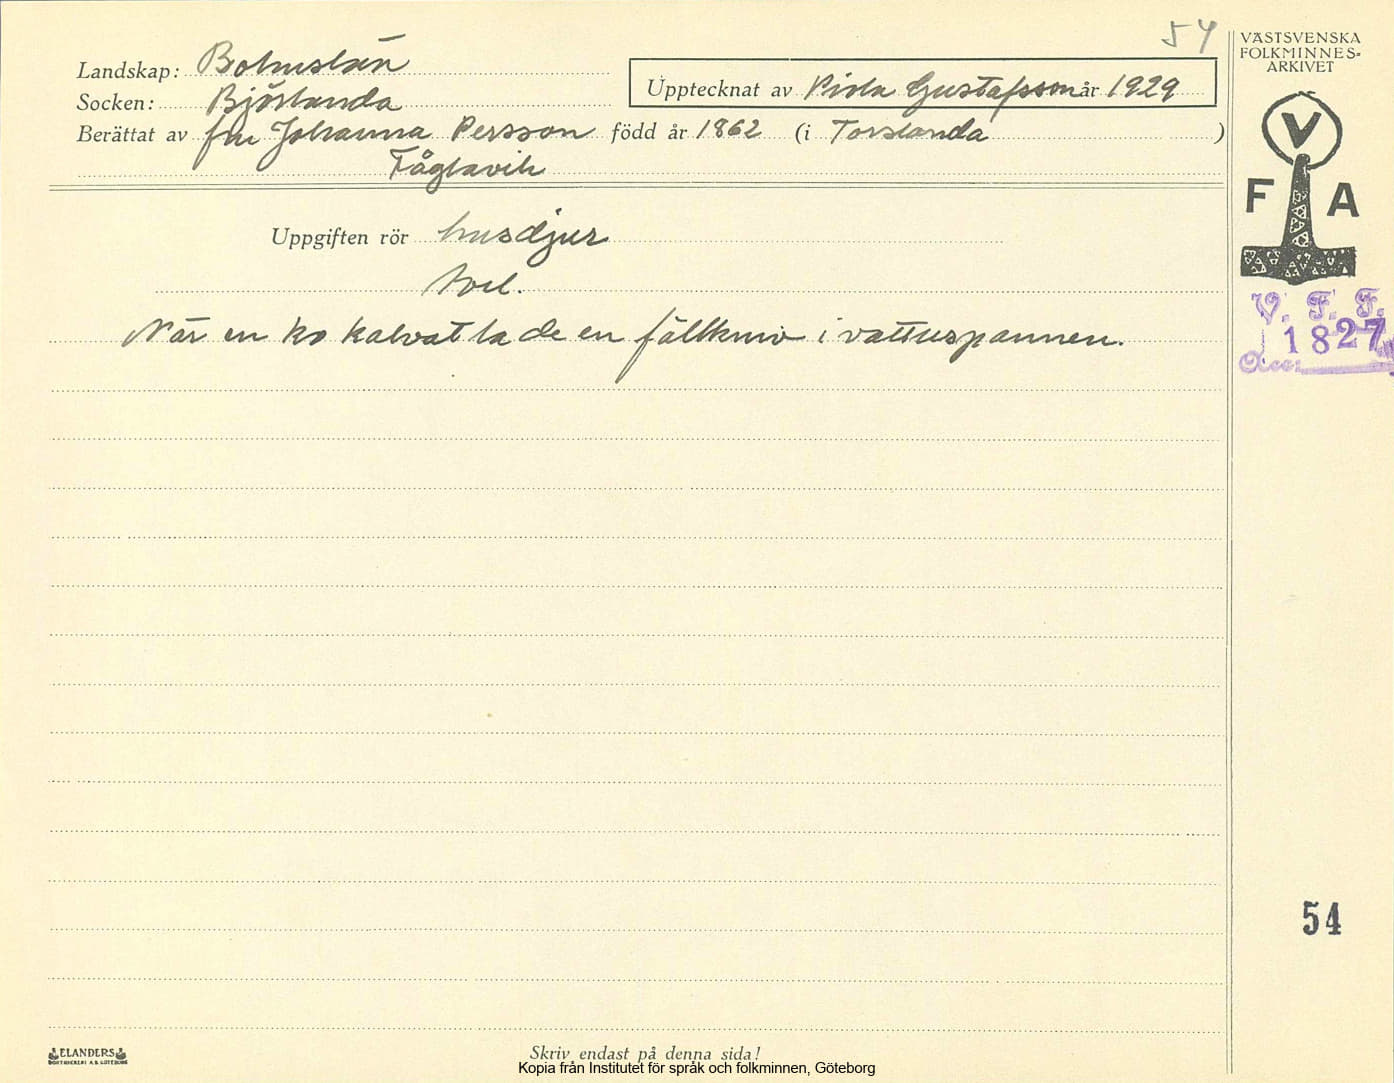 54
VÄSTSVENSKA
FOLKMINNES-
ARKIVET
Landskap: Bohuslän
Socken: Björlanda
Upptecknat av Viola Gustafsson år 1929
Berättat av fru Johanna Persson född år 1862 (i Torslanda )
Fåglavik
V
F A
Uppgiften rör husdjur
V. F. F.
1827
Acc:
När en ko kalvat la de en fällkniv i vattuspannen.
54
ELANDERS
BOKTRYCKERI A.B. GÖTEBORG
Skriv endast på denna sida!
Kopia från Institutet för språk och folkminnen, Göteborg